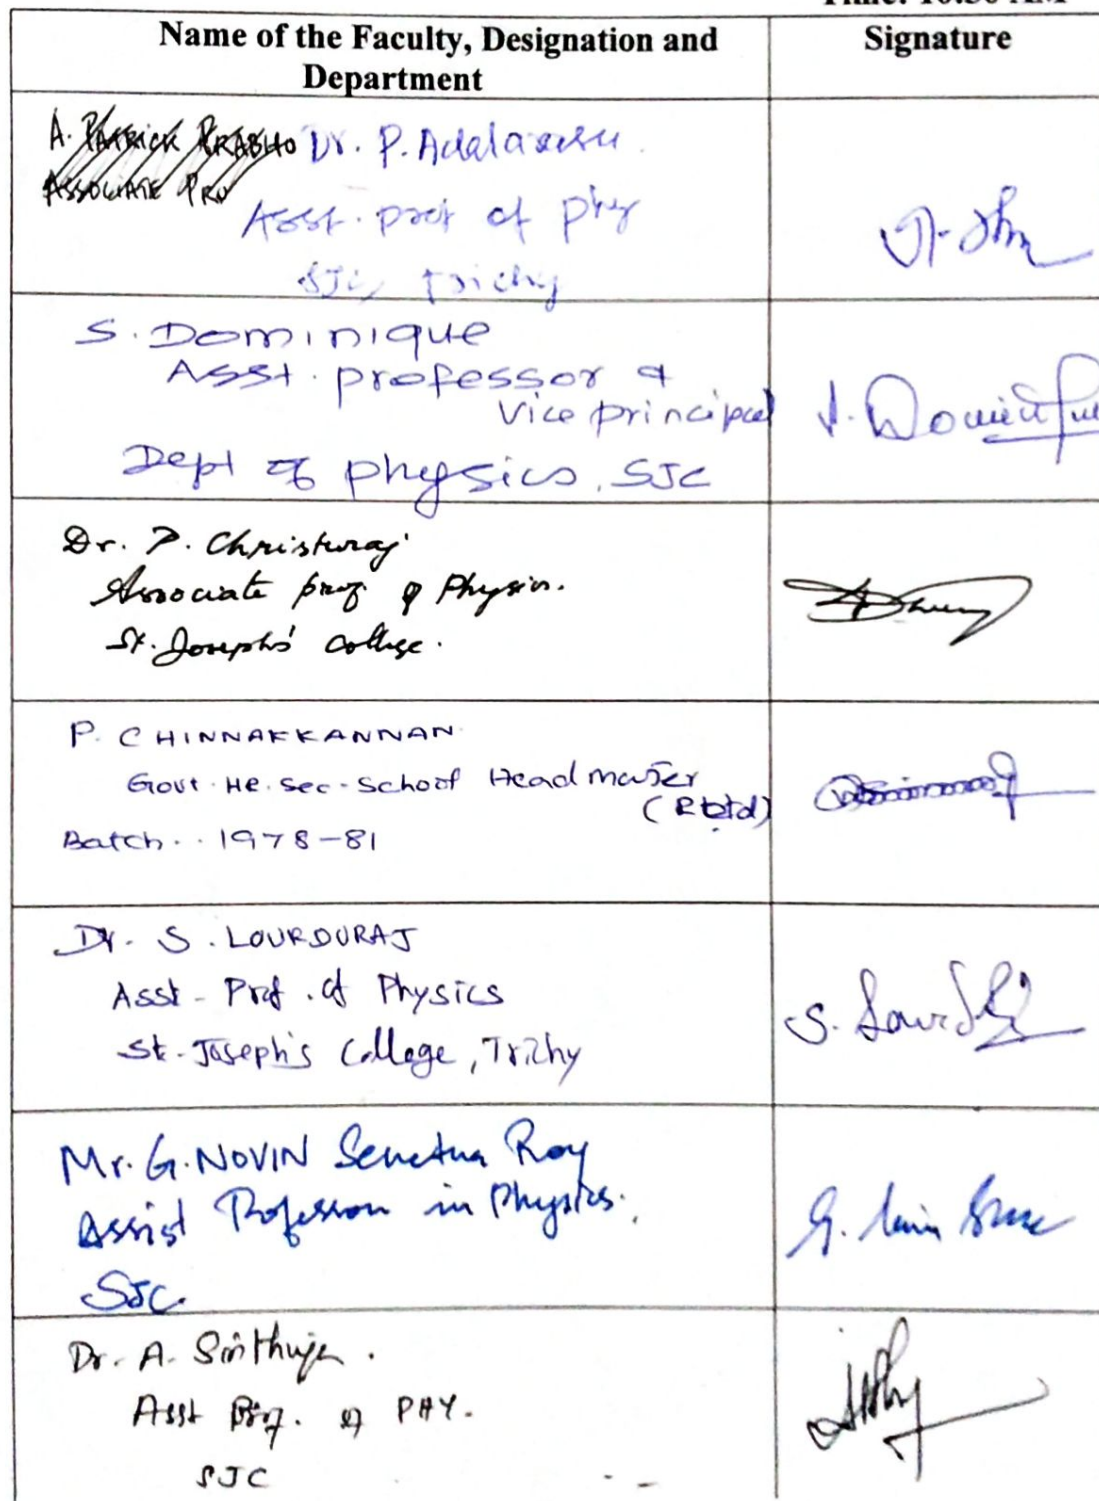 Time: 10:30 AM
Name of the Faculty, Designation and
Department
Signature
A. PATRICK PRABHO Dr. P. Adalarasu
ASSOCIATE PRO
Asst. prof of phy
SJC, Trichy
S. Dominique
Asst. professor &
Vice principal
Dept of physics, SJC
Dr. P. Christuraj
Associate prof of Physics.
St. Joseph's college.
P. CHINNAKKANNAN
Govt. He. Sec. School Headmaster
(Retd)
Batch.. 1978-81
Dr. S. LOURDURAJ
Asst - Prof. of Physics
St. Joseph's College, Trichy
S.
Mr. G. NOVIN Roy
Assist Professor in Physics.
G.
SJC.
Dr. A. Sinthuja.
Asst Prof. of PHY.
SJC